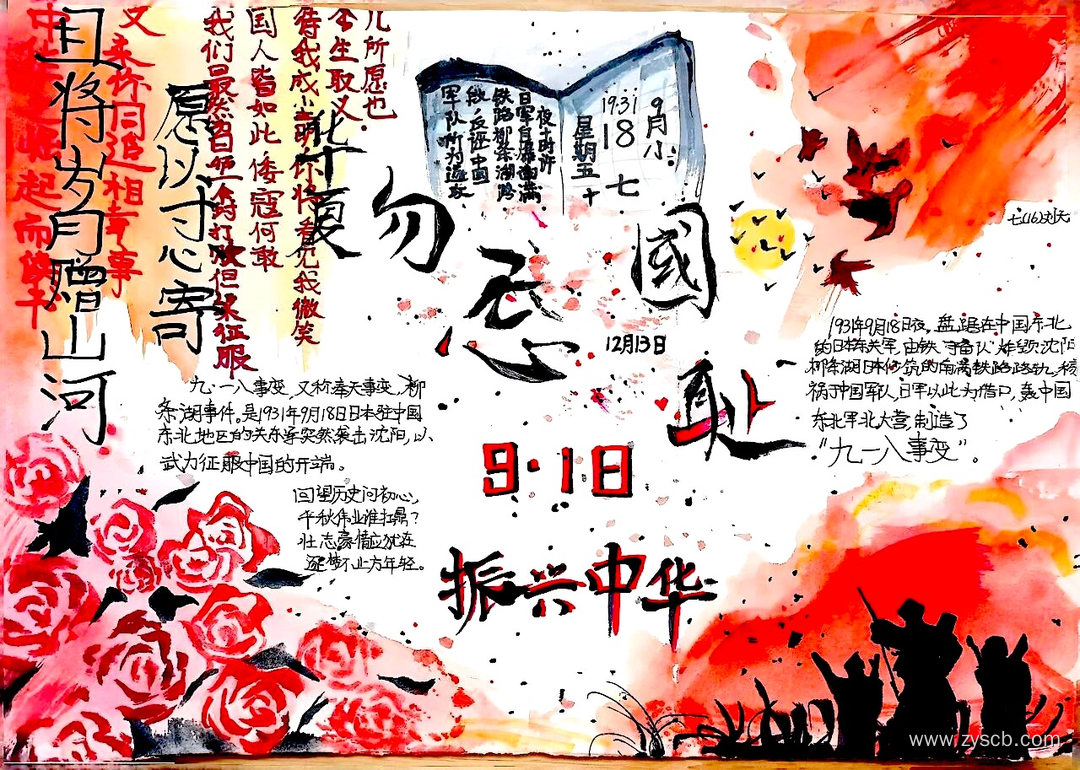 愿以寸心寄华夏
国将岁月赠山河
儿所愿也.
舍生取义
待我成尘时你将看见我微笑
国人皆如此倭寇何敢
9月小
1931
18 七
星期五十
夜十时许
日军自爆南满
铁路柳条湖路
段反诬中国
军队所为遂攻
勿忘國耻
12月13日
9·18
振兴中华
七(16)刘天
1931年9月18日夜,盘踞在中国东北
的日本关东军,由铁路守备队炸毁沈阳
柳条湖日本修筑的南满铁路路轨,栽
祸于中国军队,日军以此为借口,轰中国
东北军北大营,制造了
“九一八事变”。
九·一八事变,又称奉天事变,柳
条湖事件。是1931年9月18日日本驻中国
东北地区的关东军突然袭击沈阳,以
武力征服中国的开端。
回望历史问初心,
千秋伟业谁扛鼎?
壮志豪情应犹在
逐梦不止方年轻。
www.zyscb.com